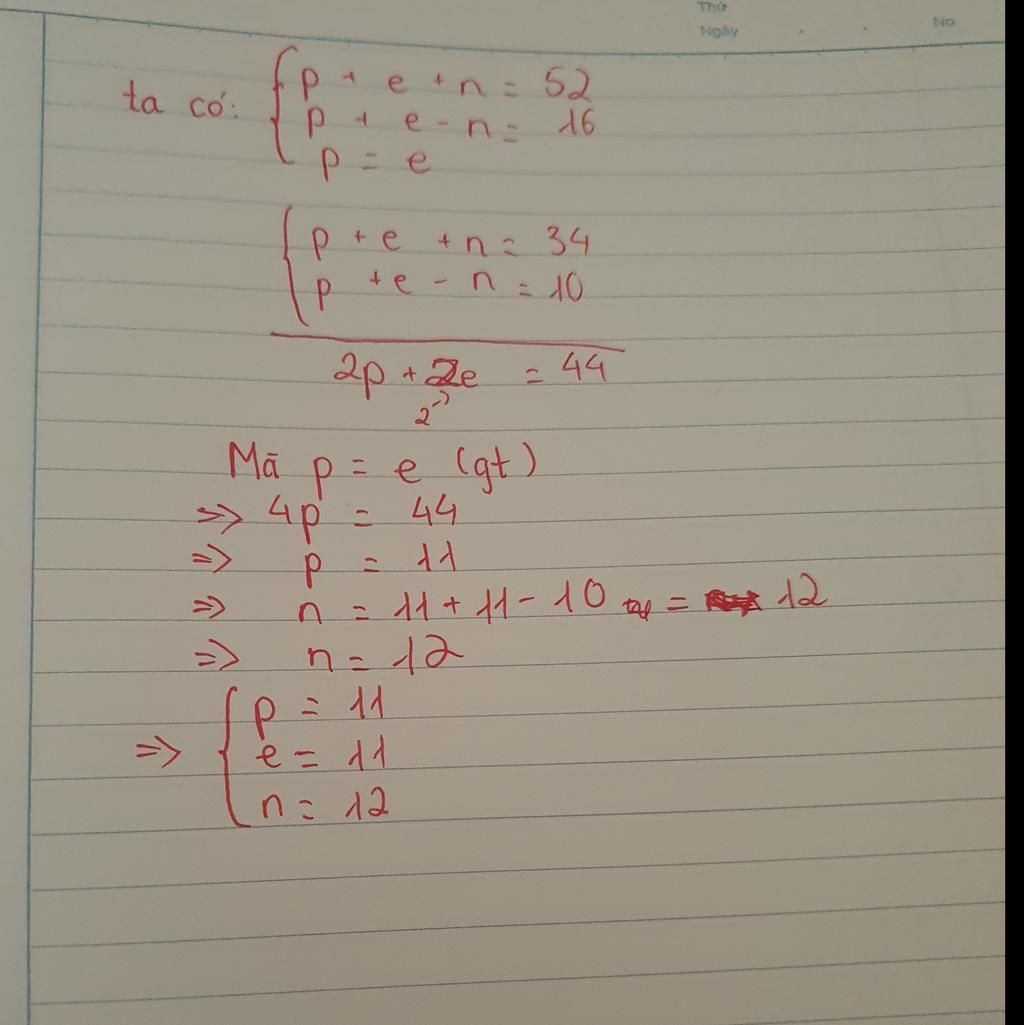 Thứ
Ngày No.
ta có: { p + e + n = 52
p + e - n = 16
p = e
{ p + e + n = 34
p + e - n = 10
2p + 2e = 44
2
Mã p = e (gt)
=> 4p = 44
=> p = 11
=> n = 11 + 11 - 10 = 12
=> n = 12
=> { p = 11
e = 11
n = 12